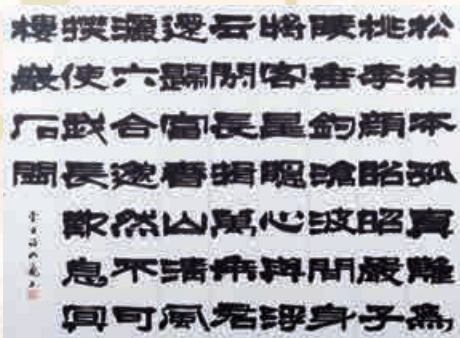 松柏本孤直難爲
桃李顔昭昭嚴子
陵垂釣滄波間身
將客星隱心與浮
云閑長揖萬乘君
還歸富春山清風
灑六合邈然不可
攀使我長歎息冥
棲巖石間